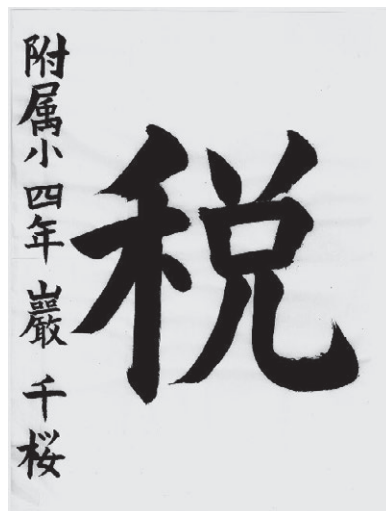 税
附属小四年 巖 千桜